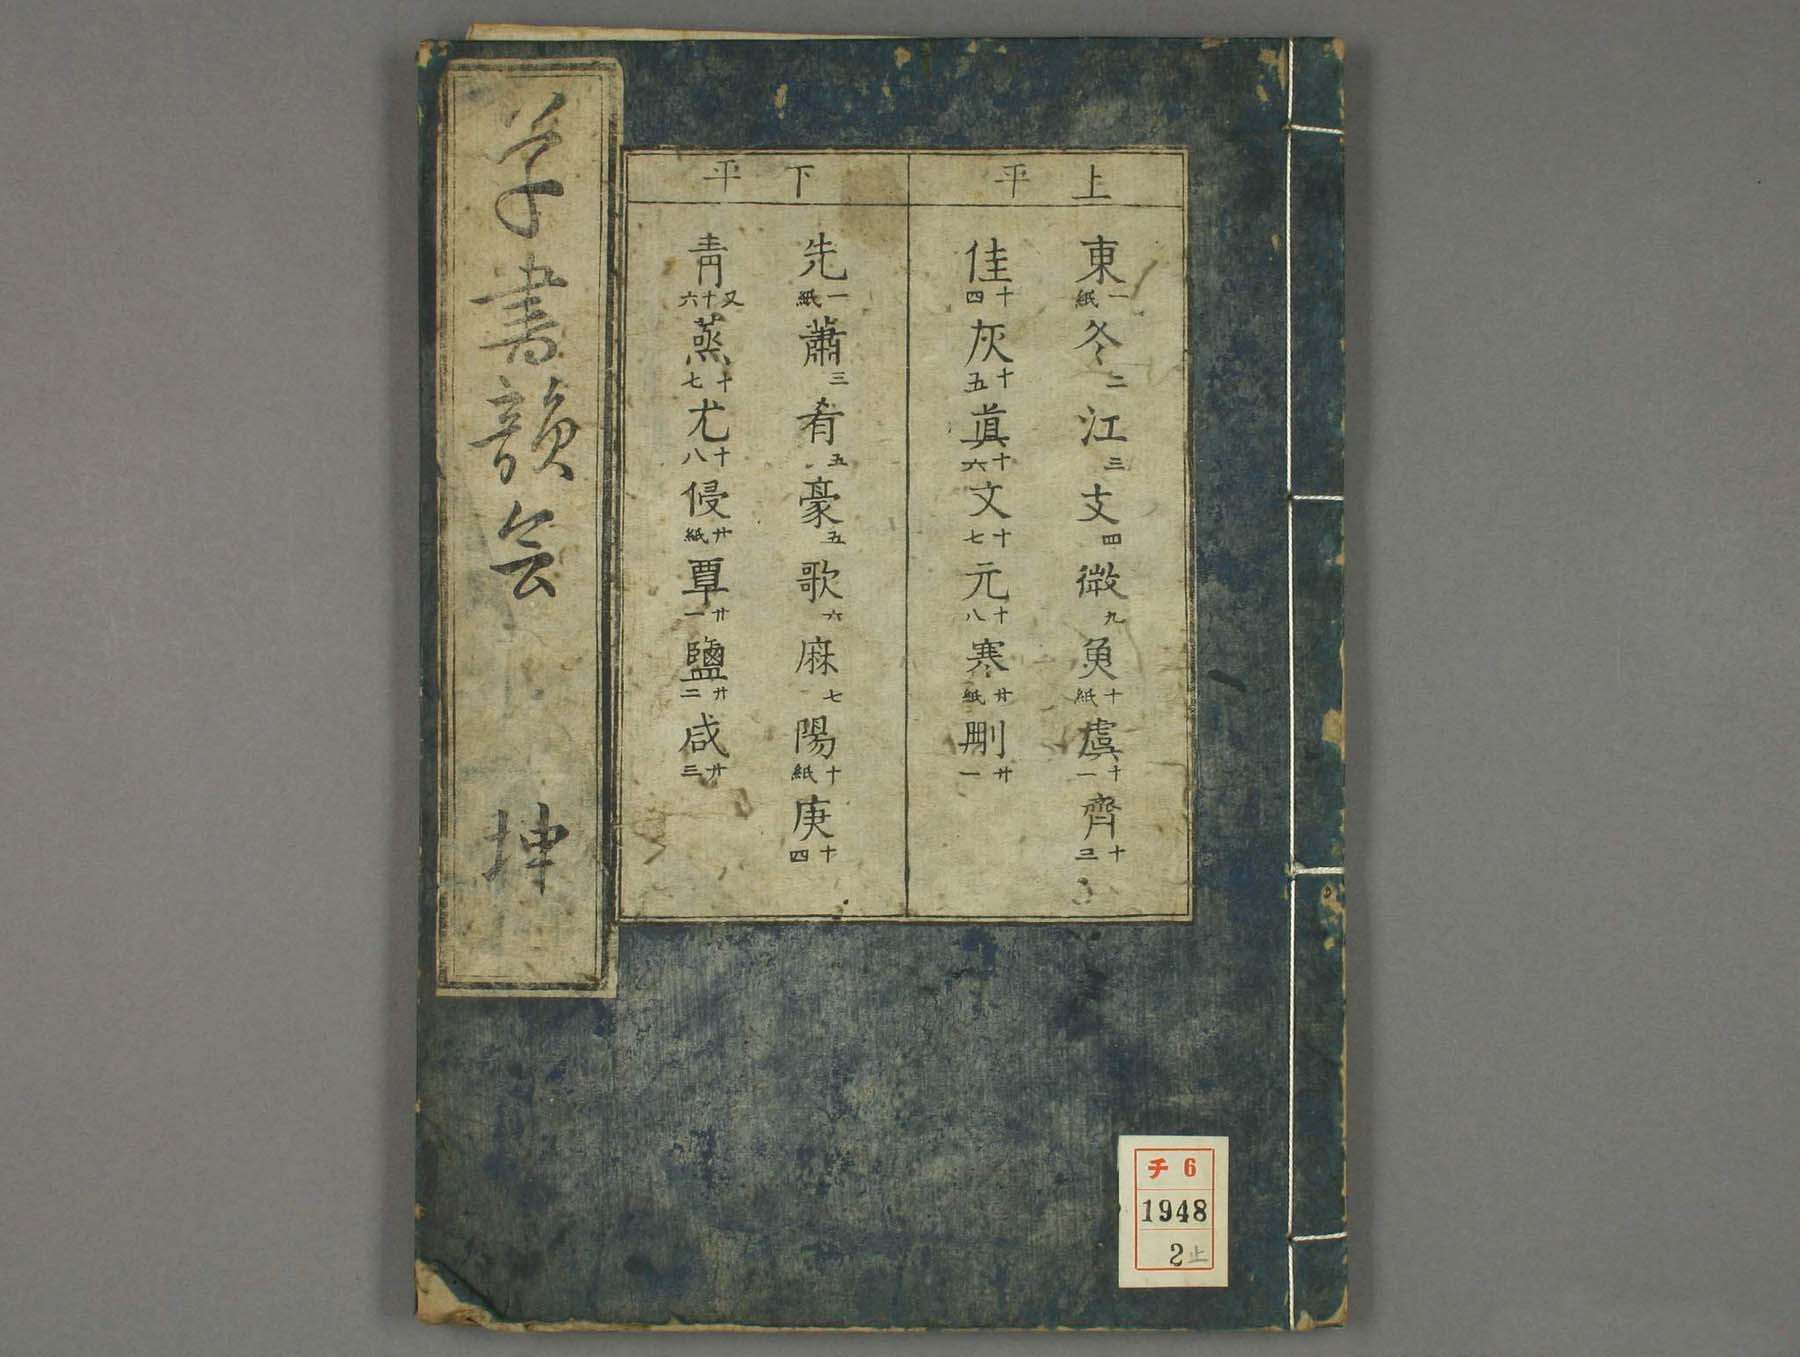 上平
東一紙冬二江三支四微九魚十紙虞十一齊十三
佳十四灰十五眞十六文十七元十八寒廿紙刪廿一
下平
先一紙蕭三肴五豪五歌六麻七陽十紙庚十四
靑又十六蒸十七尤十八侵廿紙覃廿一鹽廿二咸廿三
草書韻会 坤
チ6
1948
2止